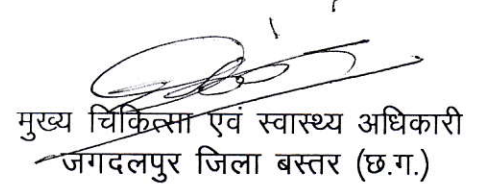 मुख्य चिकित्सा एवं स्वास्थ्य अधिकारी
जगदलपुर जिला बस्तर (छ.ग.)